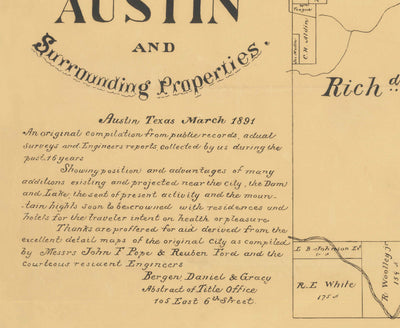 AUSTIN
AND
Surrounding Properties.
Austin Texas March 1891
An original compilation from public records, actual
surveys and Engineers reports collected by us during the
past 16 years
Showing position and advantages of many
additions existing and projected near the city, the Dam
and Lake the seat of present activity and the moun-
tain highls soon to be crowned with residences and
hotels for the traveler intent on health or pleasure
Thanks are proffered for aid derived from the
excellent detail maps of the original City as compiled
by Messrs John F Pope & Reuben Ford and the
courteous resident Engineers
Bergen, Daniel & Gracy
Abstract of Title Office
105 East 6th Street.
C.H. Aldin
Rich d
E B Johnson
R.E White
175 A
H. Wooley